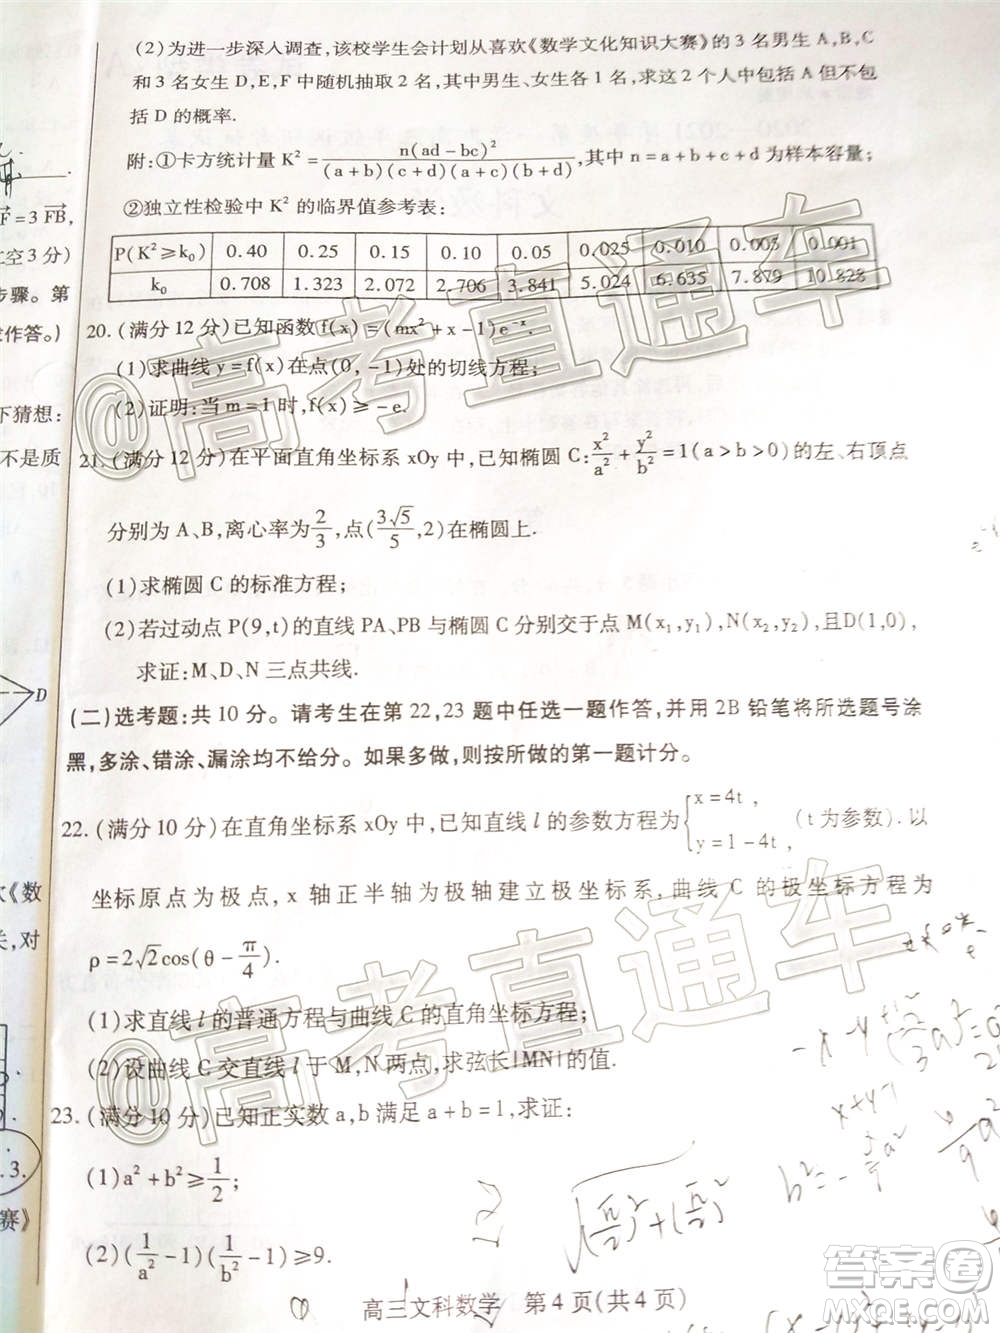 (2)为进一步深入调查,该校学生会计划从喜欢《数学文化知识大赛》的3名男生A,B,C
和3名女生D,E,F中随机抽取2名,其中男生、女生各1名,求这2个人中包括A但不包
括D的概率.
附:①卡方统计量K²=n(ad-bc)²/((a+b)(c+d)(a+c)(b+d)),其中n=a+b+c+d为样本容量;
②独立性检验中K²的临界值参考表:
P(K²≥k₀) 0.40 0.25 0.15 0.10 0.05 0.025 0.010 0.005 0.001
k₀ 0.708 1.323 2.072 2.706 3.841 5.024 6.635 7.879 10.828
20.(满分12分)已知函数f(x)=(mx²+x-1)e⁻ˣ.
(1)求曲线y=f(x)在点(0,-1)处的切线方程;
(2)证明:当m=1时,f(x)≥-e.
21.(满分12分)在平面直角坐标系xOy中,已知椭圆C:x²/a²+y²/b²=1(a>b>0)的左、右顶点
分别为A、B,离心率为2/3,点(3√5/5,2)在椭圆上.
(1)求椭圆C的标准方程;
(2)若过动点P(9,t)的直线PA、PB与椭圆C分别交于点M(x₁,y₁),N(x₂,y₂),且D(1,0),
求证:M、D、N三点共线.
(二)选考题:共10分。请考生在第22,23题中任选一题作答,并用2B铅笔将所选题号涂
黑,多涂、错涂、漏涂均不给分。如果多做,则按所做的第一题计分。
22.(满分10分)在直角坐标系xOy中,已知直线l的参数方程为{x=4t, y=1-4t, (t为参数).以
坐标原点为极点,x轴正半轴为极轴建立极坐标系,曲线C的极坐标方程为
ρ=2√2cos(θ-π/4).
(1)求直线l的普通方程与曲线C的直角坐标方程;
(2)设曲线C交直线l于M,N两点,求弦长|MN|的值.
23.(满分10分)已知正实数a,b满足a+b=1,求证:
(1)a²+b²≥1/2;
(2)(1/a²-1)(1/b²-1)≥9.
高三文科数学 第4页(共4页)
F=3FB,
空3分)
步骤。第
作答。)
下猜想:
不是质
D
《数
关,对
3.
赛》
@高考直通车
@高考直通车
答案圈
MXQE.COM